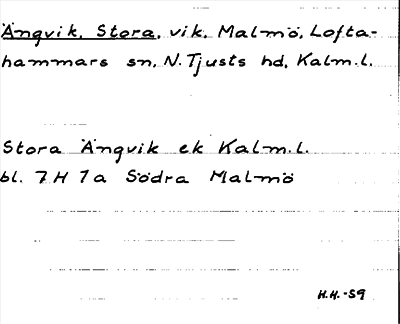 Ängvik, Stora, vik, Malmö, Lofta-
hammars sn, N. Tjusts hd, Kalm.l.
Stora Ängvik ek Kalm.l.
bl. 7H 7a Södra Malmö
H.H.-59